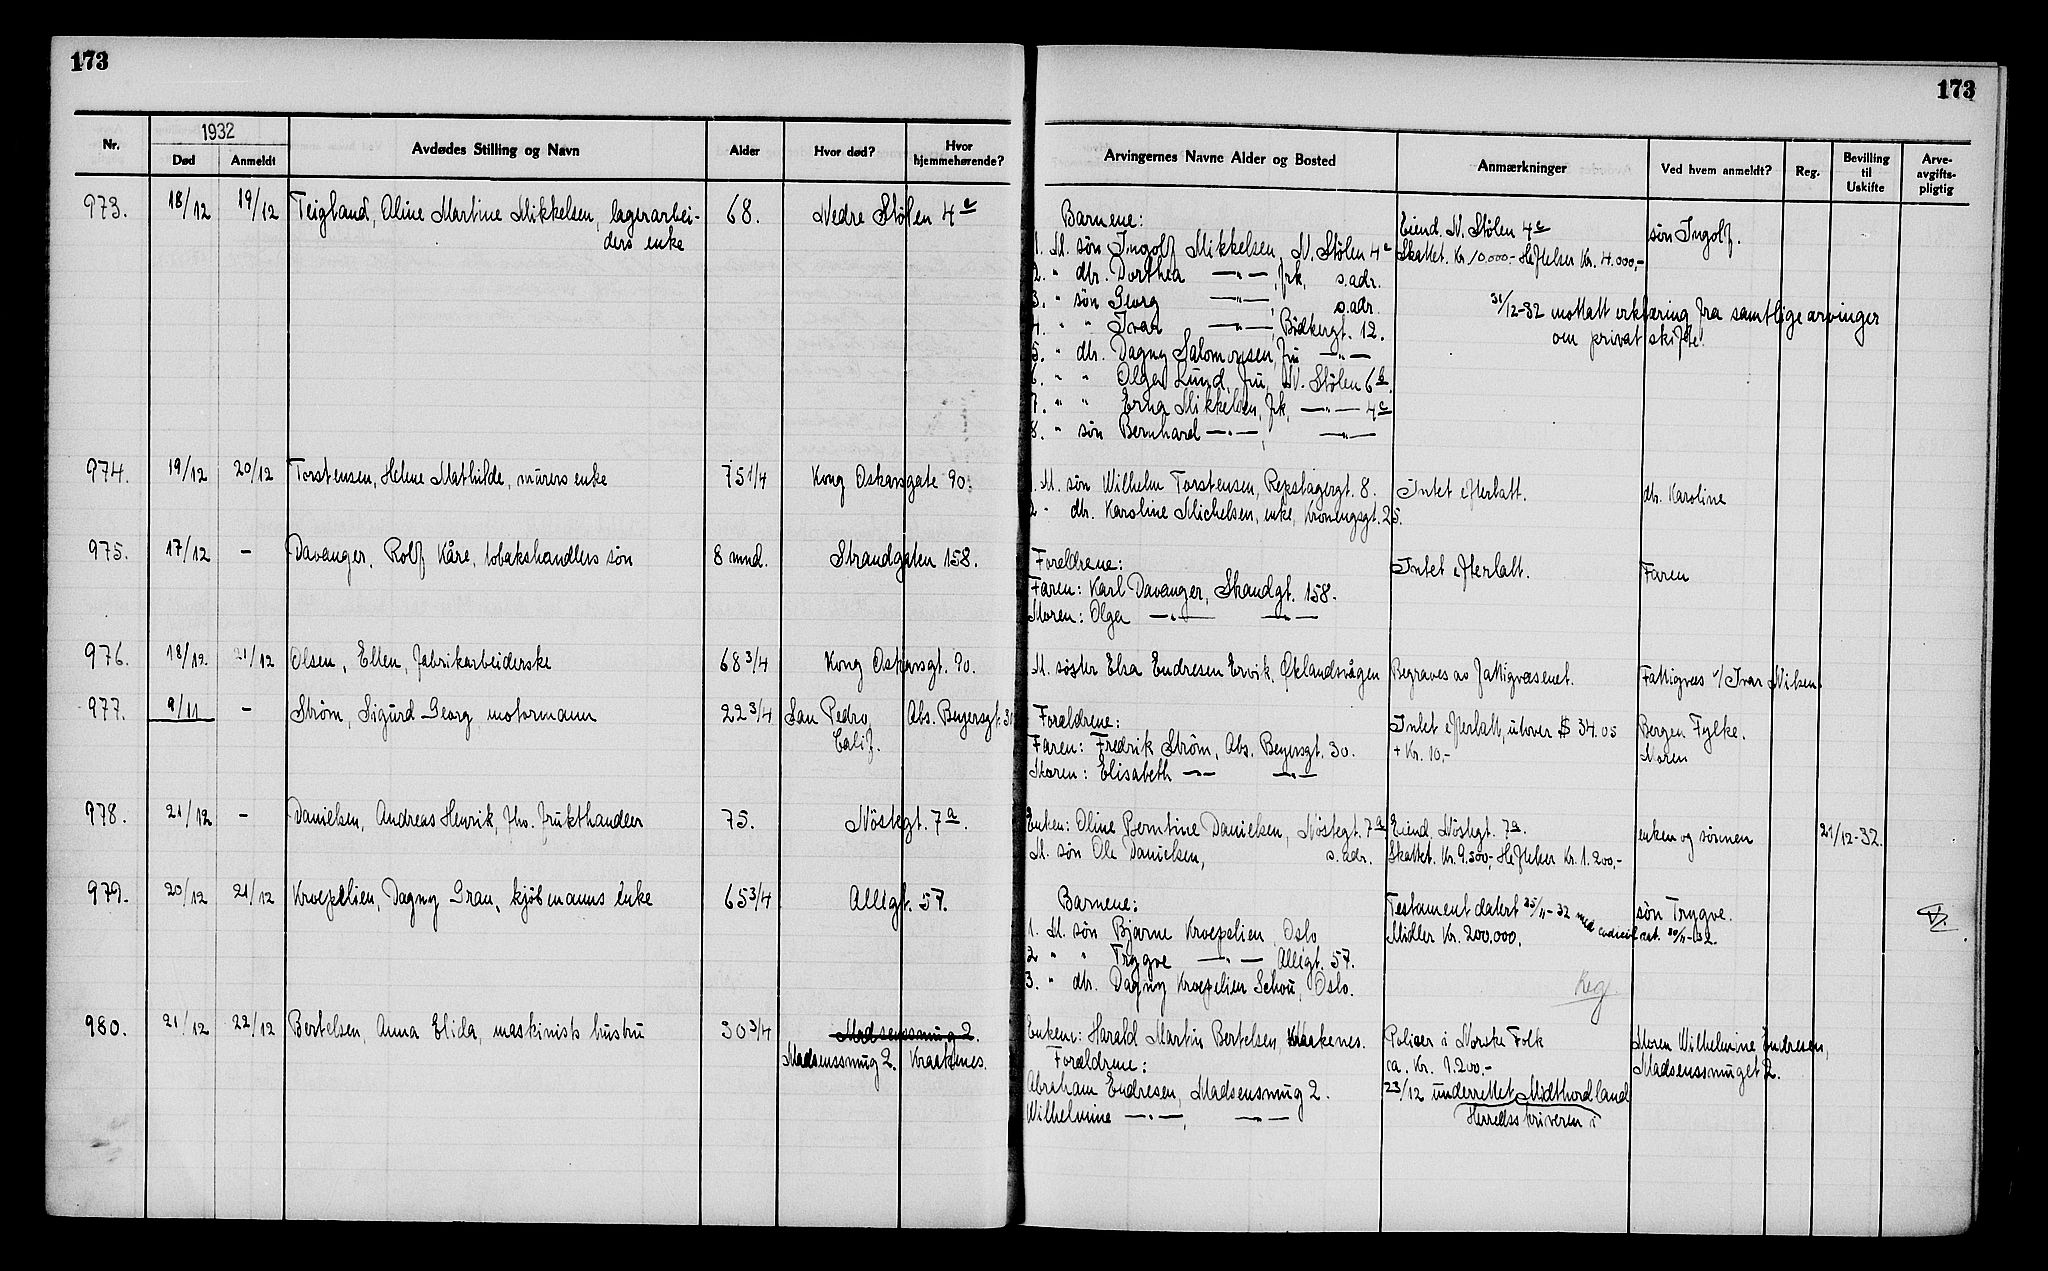 173
173
Nr.
1932
Død
Anmeldt
Avdødes Stilling og Navn
Alder
Hvor død?
Hvor hjemmehørende?
Arvingernes Navne Alder og Bosted
Anmærkninger
Ved hvem anmeldt?
Reg.
Bevilling til Uskifte
Arve-avgifts-pligtig
973. 18/12 19/12 Teigland, Oline Martine Mikkelsen, lagerarbei- 68. Nedre Stølen 4c
ders enke
Barnene:
1. M. søn Ingolf Mikkelsen, N. Stølen 4c
2. " dtr. Dorthea —"—, frk, s.adr.
3. " søn Georg —"—, s.adr.
4. " " Ivar —"—, Bødkergt. 12.
5. " dtr. Dagny Salomonsen, fru —"—
6. " " Olga Lund, fru, N. Stølen 6b.
7. " " Erna Mikkelsen, frk, —"— 4c
8. " søn Bernhard —"—, —"—
Eiend. N. Stølen 4c
Skattet. Kr. 10.000.- Heftelser Kr. 4.000,-
31/12-32 mottatt erklæring fra samtlige arvinger
om privat skifte.
søn Ingolf.
974. 19/12 20/12 Torstensen, Helene Mathilde, murers enke 75 1/4 Kong Oskarsgate 90.
M. søn Wilhelm Torstensen, Repslagergt. 8.
2 - dtr. Karoline Michelsen, enke, Kroningsgt. 25.
Intet efterlatt.
dtr. Karoline
975. 17/12 - Davanger, Rolf Kåre, tobakshandlers søn 8 mnd. Strandgaten 158.
Foreldrene:
Faren: Karl Davanger, Strandgt. 158.
Moren: Olga —"— —"—
Intet efterlatt.
Faren
976. 18/12. 21/12 Olsen, Ellen, fabrikarbeiderske 68 3/4 Kong Oskarsgt. 90.
M. søster Elsa Endresen Ervik, Øklandsvågen
Begraves av fattigvæsenet.
Fattigvæs v/ Ivar Nilsen.
977. 9/11 - Strøm, Sigurd Georg motormann 22 3/4 San Pedro, Abs. Beyersgt. 30
Calif.
Foreldrene:
Faren: Fredrik Strøm, Abs. Beyersgt. 30.
Moren: Elisabeth —"— —"—
Intet efterlatt, utover $ 34.05
+ Kr. 10,-
Bergen Fylke.
Moren
978. 21/12 - Danielsen, Andreas Henrik, fhv. frukthandler 75. Nöstegt. 7a.
Enken: Oline Berntine Danielsen, Nöstegt. 7a
M. søn Ole Danielsen, s.adr.
Eiend. Nöstegt. 7a.
Skattet. Kr. 9.500,- Heftelser Kr. 1.200,-
enken og sönnen
21/12-32.
979. 20/12 21/12 Kroepelien, Dagny Gran, kjöbmanns enke 65 3/4 Allégt. 57.
Barnene:
1. M. søn Bjarne Kroepelien, Oslo
2 " " Trygve —"— Allégt. 57.
3. " dtr. Dagny Kroepelien Schou, Oslo.
Testament datert 25/11-32 med codicil dat. 30/11-32.
Midler Kr. 200.000.
Reg
søn Trygve.
980. 21/12 22/12 Bertelsen, Anna Elida, maskinists hustru 30 3/4 Madsenssmug 2.
Madsenssmug 2. Kraakenes.
Enkem: Harald Martin Bertelsen, Kraakenes.
Foreldrene:
Abraham Endresen, Madsensmug 2.
Wilhelmine —"—, —"—
Poliser i Norske Folk
ca. Kr. 1.200,-
23/12 underrettet Midthordland
Herredsskriveren i
Moren Wilhelmine Endresen,
Madsenssmuget 2.